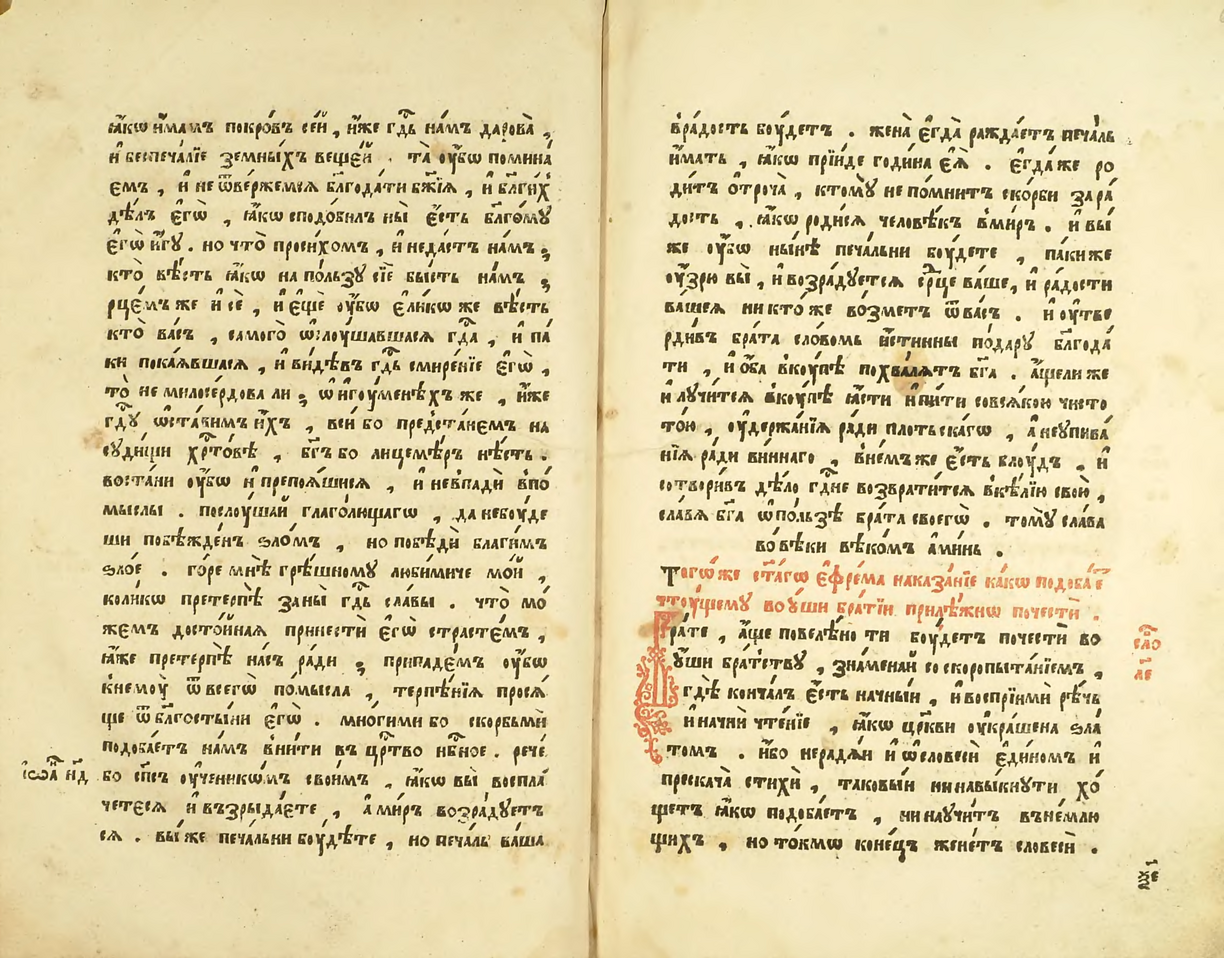 ꙗ҆́кѡ и҆́мамъ покро́въ се́й , и҆́же гдⷭ҇ь на́мъ дарова̀ ,
и҆ беспеча́лїе земны́хъ веще́й . та̀ ᲂу҆́бѡ помина́
емъ , и҆ не ѿве́ржемсѧ блгⷣа́ти бж҃їѧ , и҆ бл҃ги́хъ
дѣ́лъ є҆гѡ̀ , ꙗ҆́кѡ сподо́билъ ны̀ є҆́сть бл҃го́мꙋ
є҆гѡ̀ и҆́гꙋ . но что̀ проси́хомъ , и҆ неда́стъ на́мъ ;
кто̀ вѣ́сть ꙗ҆́кѡ на по́льзꙋ сїѐ бы́сть на́мъ ;
рце́мъ же и҆ сѐ , и҆ є҆щѐ ᲂу҆́бѡ є҆ли́кѡ же вѣ́сть
кто̀ ва́съ , самого̀ ѡ҆слоу́шавшасѧ гдⷭ҇а , и҆ па́
ки пока́ѧвшасѧ , и҆ ви́дѣвъ гдⷭ҇ь смире́нїе є҆гѡ̀ ,
то̀ не милосе́рдова ли ; ѡ҆ и҆гоу́менѣхъ же , и҆́же
гдⷭ҇ꙋ ѡ҆ста́вимъ и҆́хъ , вси́ бо предста́немъ на
сꙋди́щи хрⷭ҇то́вѣ , бг҃ъ бо лицемѣ́ръ нѣ́сть .
воста́ни ᲂу҆́бѡ и҆ препоѧ́шисѧ , и҆ невпади́ впо́
мыслы . послоу́шай глаго́лющагѡ , да небоу́де
ши побѣжде́нъ ѕло́мъ , но побѣди́ благи́мъ
ѕло́е . го́ре мнѣ̀ грѣ́шномꙋ люби́миче мо́й ,
коли́кѡ претерпѣ̀ за ны̀ гдⷭ҇ь сла́вы . что̀ мо́
жемъ досто́йнаѧ принестѝ є҆гѡ̀ страсте́мъ ,
ꙗ҆́же претерпѣ̀ на́съ ра́ди ; припаде́мъ ᲂу҆́бѡ
кнемоу̀ ѿ всегѡ̀ по́мысла , терпѣ́нїѧ просѧ́
ще ѿ бл҃госты́ни є҆гѡ̀ . мно́гими бо ско́рбьми
подоба́етъ на́мъ вни́ти въ црⷭ҇тво нбⷭ҇ное . рече́
бо сп҃съ ᲂу҆ченикѡ́мъ свои́мъ , ꙗ҆́кѡ вы̀ воспла́
четесѧ и҆ възрыда́ете , а҆ ми́ръ возра́дꙋетъ
сѧ . вы́ же печа́льни боу́дѣте , но печа́ль ва́ша
і҆ѡⷩ҇а нд
вра́дость боу́детъ . жена̀ є҆гда̀ ражда́етъ печа́ль
и҆́мать , ꙗ҆́кѡ прїи́де годи́на є҆ѧ̀ . є҆гда́ же ро
ди́тъ ѻ҆троча̀ , ктомꙋ̀ непо́мнитъ ско́рби зара́
дость , ꙗ҆́кѡ роди́сѧ человѣ́къ вми́ръ . и҆ вы̀
же ᲂу҆́бѡ ны́нѣ печа́льни боу́дете , па́киже
ᲂу҆́зрю вы̀ , и҆ возра́дꙋетсѧ срⷣце ва́ше , и҆ ра́дости
ва́шеѧ никто́же во́зметъ ѿ ва́съ . и҆ ᲂу҆тве
рди́въ бра́та сло́вомь и҆́стинны пода́рꙋ блгⷣа́
ти , и҆ ѻ҆́ба вкоу́пѣ похва́лѧтъ бг҃а . а҆́щели же
и҆ лꙋчи́тсѧ вкоу́пѣ ꙗ҆́сти и҆ пи́ти совсѧ́кою чисто
то́ю , ᲂу҆держа́нїѧ ра́ди пло́тьскагѡ , а҆ неупива́
нїѧ ра́ди ви́ннаго , вне́мъже є҆́сть блоу́дъ . и҆
сотвори́въ дѣ́ло гдⷭ҇не возврати́тсѧ вкѣ́лїю свою̀ ,
сла́вѧ бг҃а ѡ҆ по́льзѣ бра́та своегѡ̀ . томꙋ̀ сла́ва
во вѣ́ки вѣко́мъ а҆ми́нь .
Тогѡ́же ст҃а́гѡ є҆фре́ма наказа́нїе ка́кѡ подоба́е
тчтоу́щемꙋ во ᲂу҆́ши бра́тїи прилѣ́жнѡ почестѝ .
Бра́те , а҆́ще повеле́но ти боу́детъ почестѝ во
ᲂу҆́ши бра́тствꙋ , зна́менай со скоропыта́нїемъ ,
гдѣ̀ конча́лъ є҆́сть начны́й , и҆ воспрїимѝ рѣ́чь
и҆ начнѝ чте́нїе , ꙗ҆́кѡ цр҃кви ᲂу҆кра́шена ѕла́
томъ . и҆́бо нерадѧ́й и҆ ѡ҆ словесѝ є҆ди́номъ и҆
прескача́ стихѝ , таковы́й ни навы́кнꙋти хо́
щетъ ꙗ҆́кѡ подоба́етъ , ни наꙋчи́тъ въне́млю
щихъ , но то́кмѡ коне́цъ жене́тъ словесѝ .
сло
ле